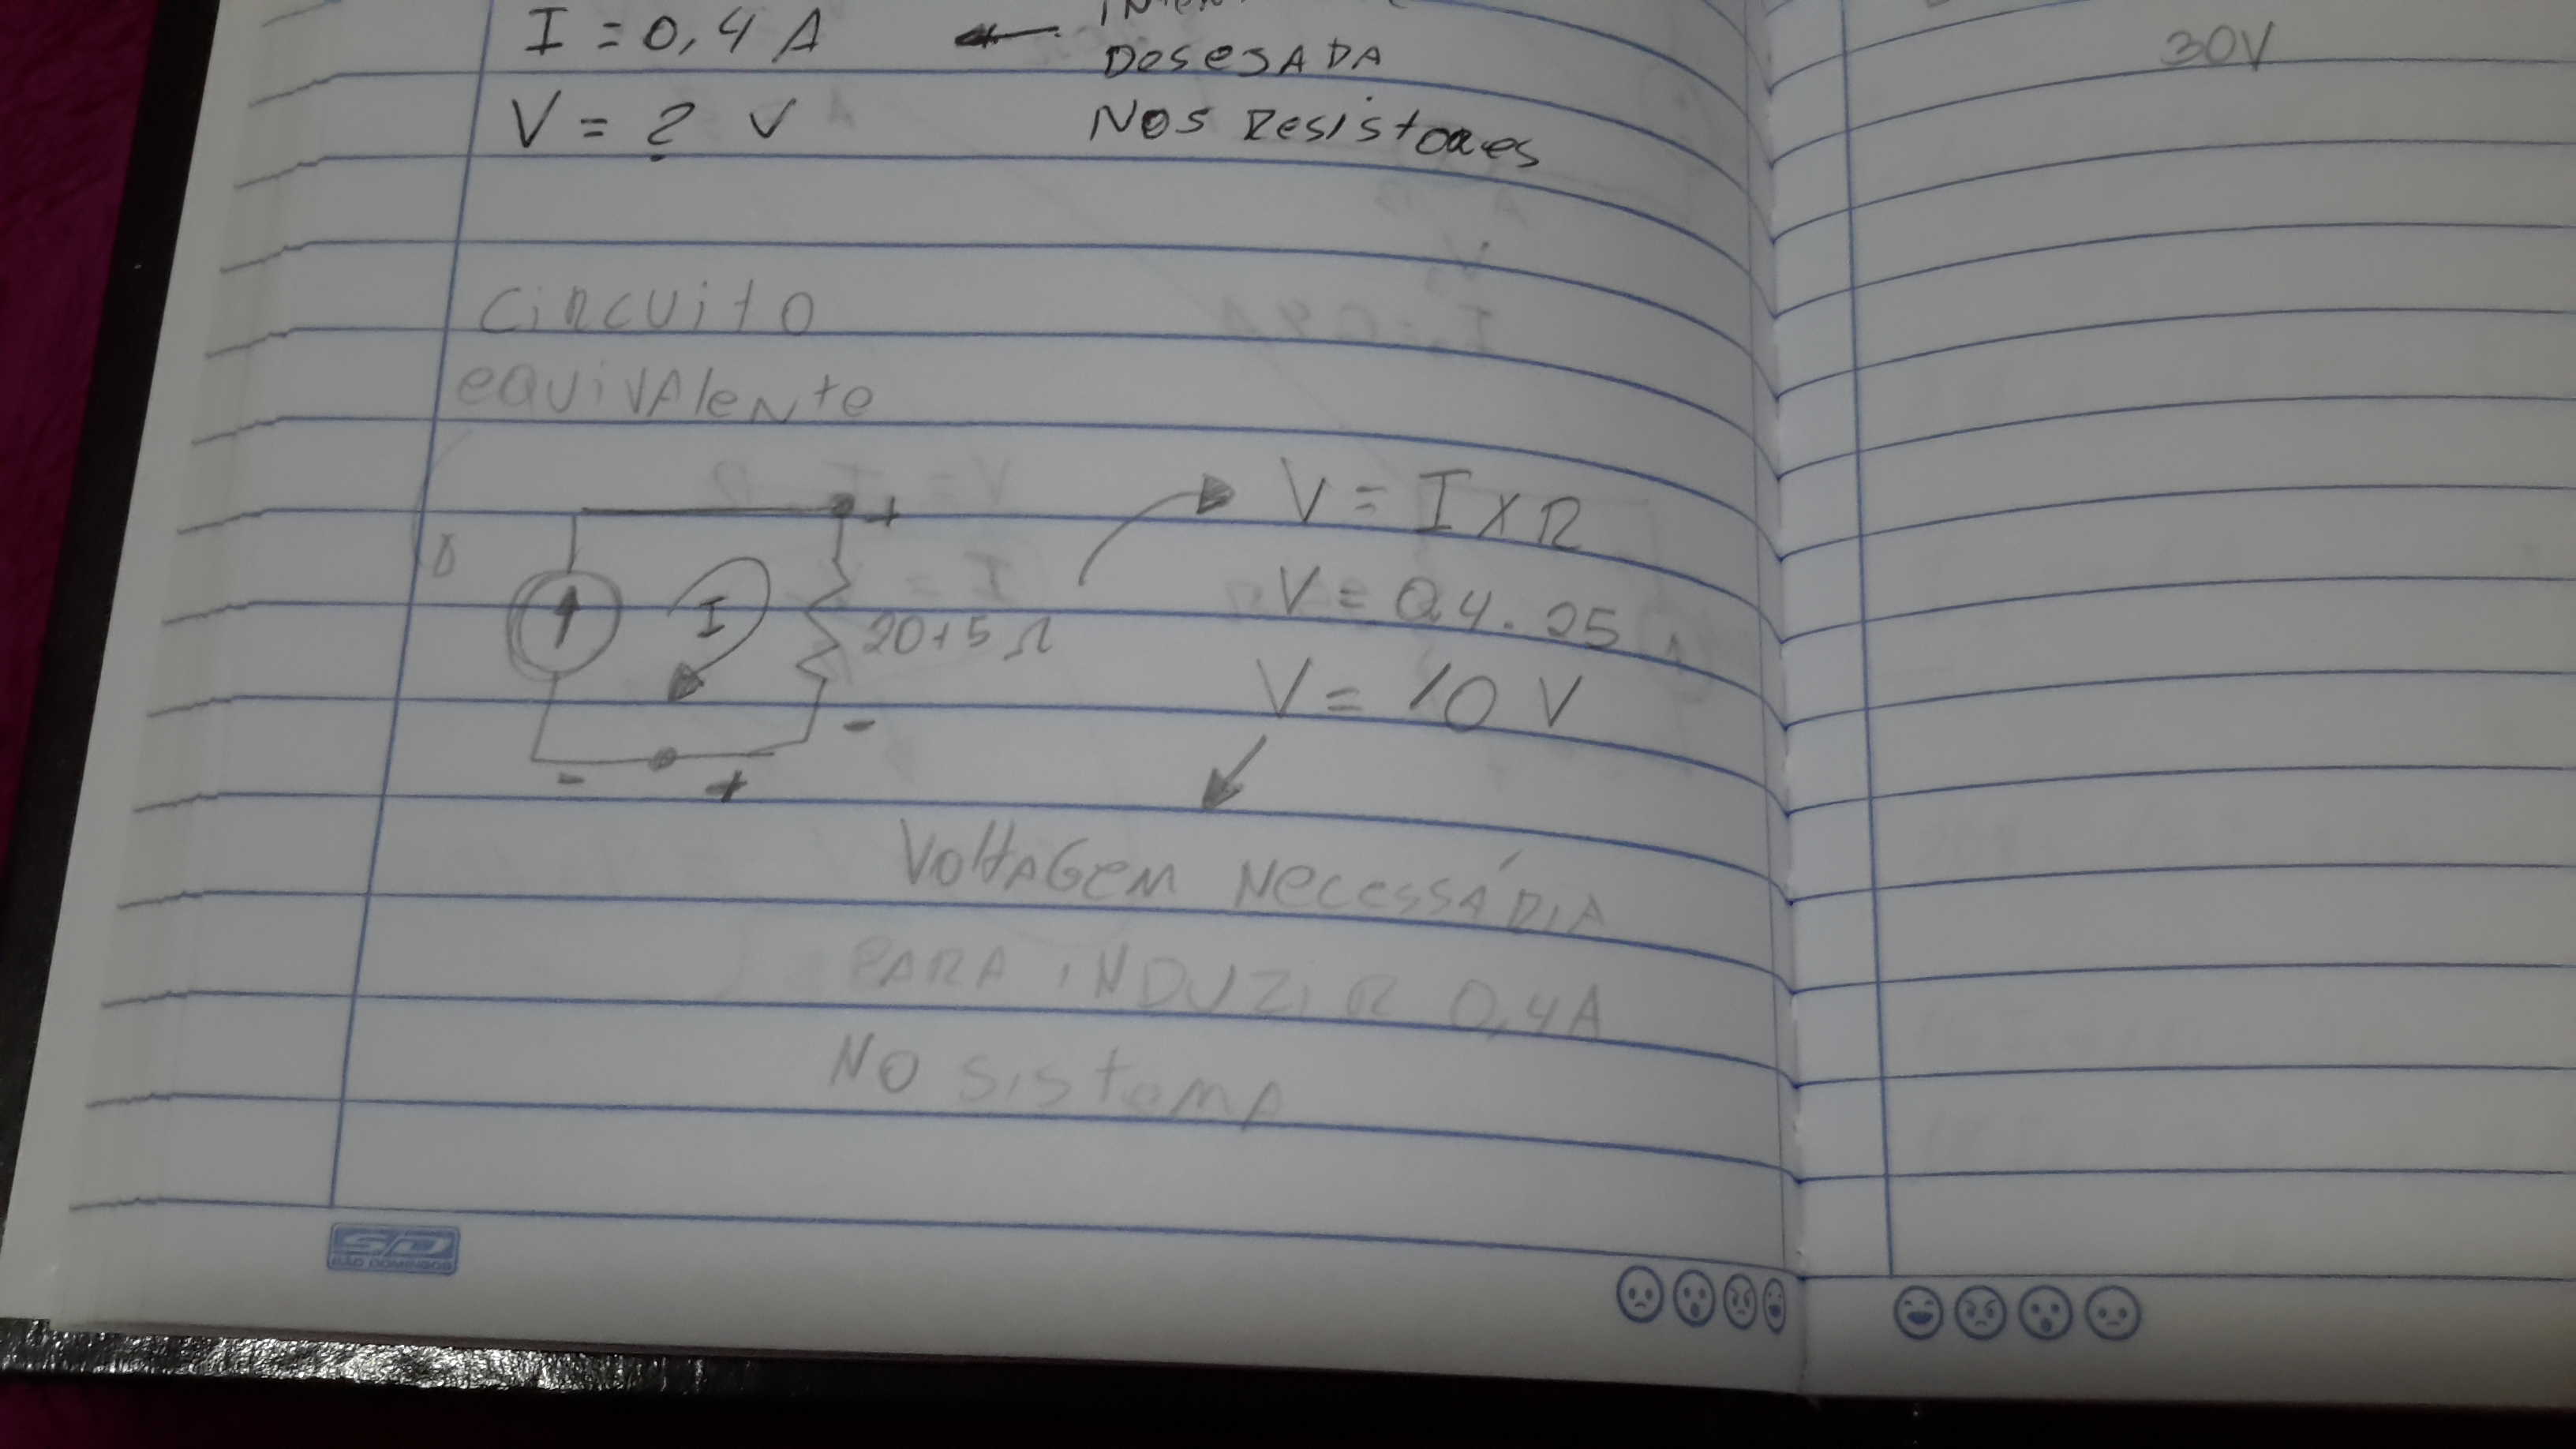 I = 0,4 A ←
DeseJADA
V = ? V
Nos Resistores
30V
circuito
equivalente
+
V = I x R
I
20+5 Ω
V = 0,4 . 25
V = 10 V
-
- +
Voltagem Necessária
PARA iNDUZiR 0,4A
No sistema
SD
SÃO DOMINGOS